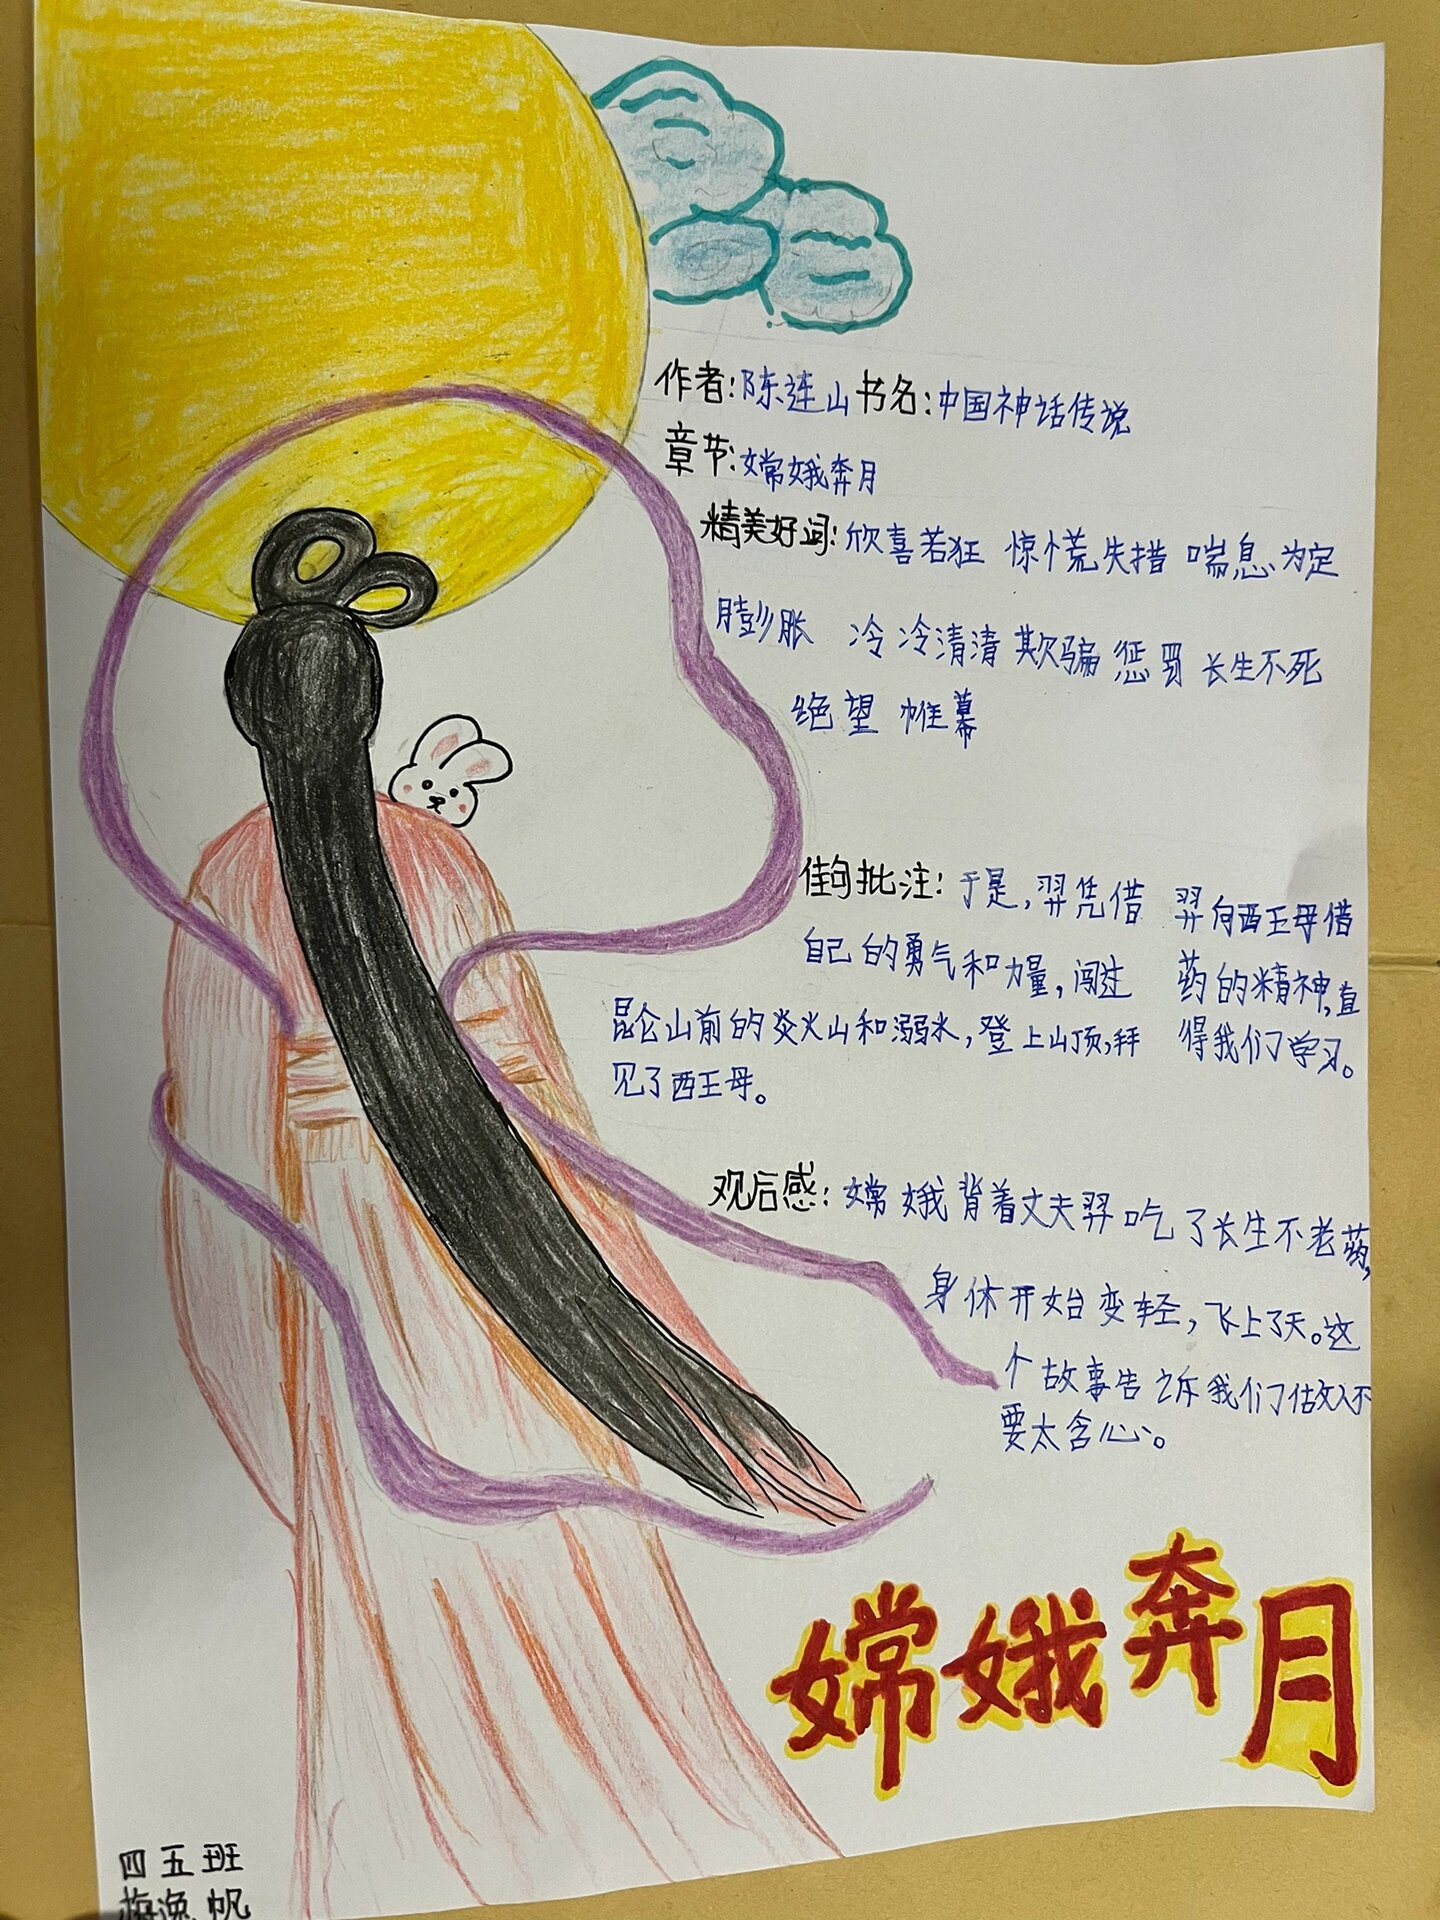 作者:陈连山书名:中国神话传说
章节:嫦娥奔月
精美好词:欣喜若狂 惊慌失措 喘息为定
膨胀 冷冷清清 欺骗 惩罚 长生不死
绝望 帷幕
佳句批注:于是,羿凭借
自己的勇气和力量,闯过
昆仑山前的炎火山和溺水,登上山顶,拜
见了西王母。
羿向西王母借
药的精神,直
得我们学习。
观后感:嫦娥背着丈夫羿吃了长生不老药,
身休开始变轻,飞上了天。这
个故事告诉我们做人不
要太含心。
嫦娥奔月
四五班
梅逸帆